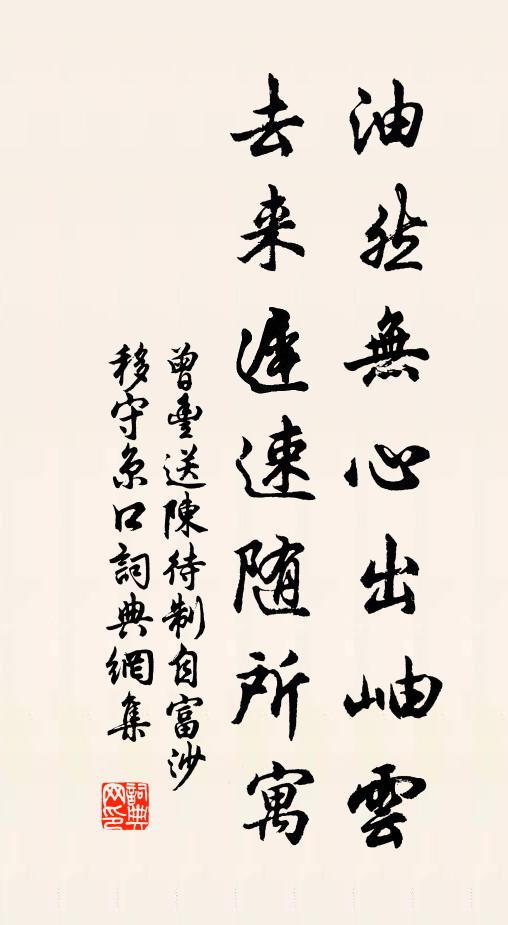 油然無心出岫雲
去来遲速随所寓
曾豐送陳待制自富沙
移守京口詞典網集
詞典网印